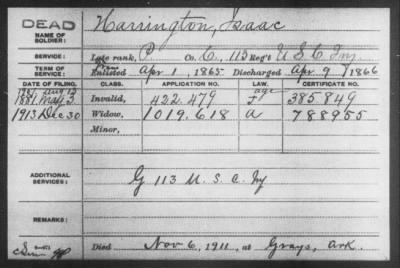 DEAD
NAME OF SOLDIER: Harrington, Isaac
SERVICE: Late rank, P Co. C, 113 Reg't U.S.C. Inf.
TERM OF SERVICE: Enlisted Apr 1, 1865 Discharged Apr. 9, 1866
DATE OF FILING. CLASS. APPLICATION NO. LAW. CERTIFICATE NO.
1881. May 3. Invalid, 422.479 age 385849
1913 Dec 30 Widow, 1019.618 a 788955
Minor,
ADDITIONAL SERVICES: G 113 U.S.C. Inf
REMARKS:
Died Nov 6, 1911, at Grays, Ark.